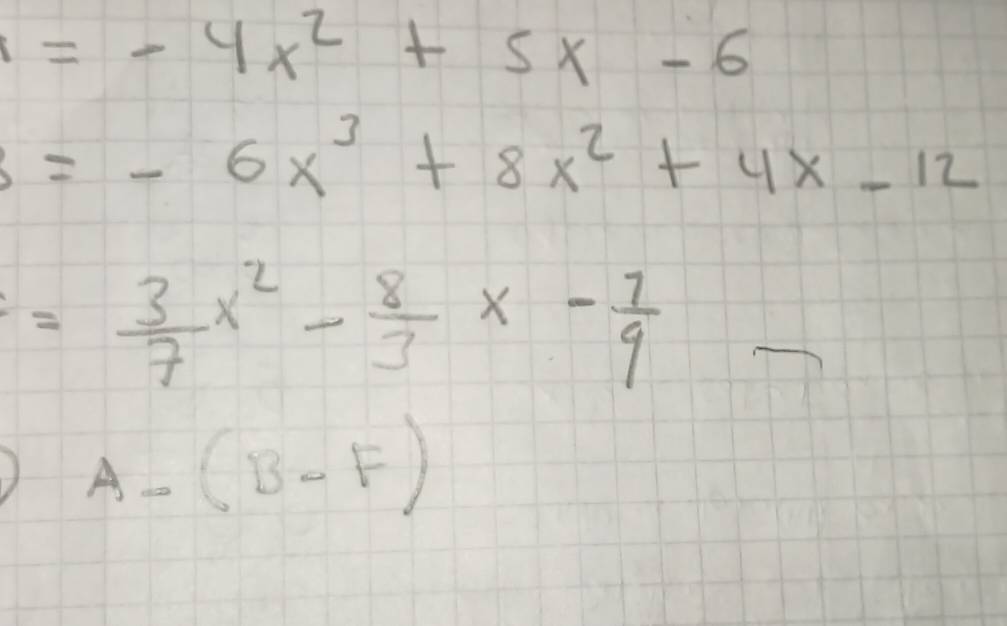 = - 4x² + 5x - 6
= - 6x³ + 8x² + 4x - 12
= 3/7 x² - 8/3 x - 1/9
) A - (B - F)